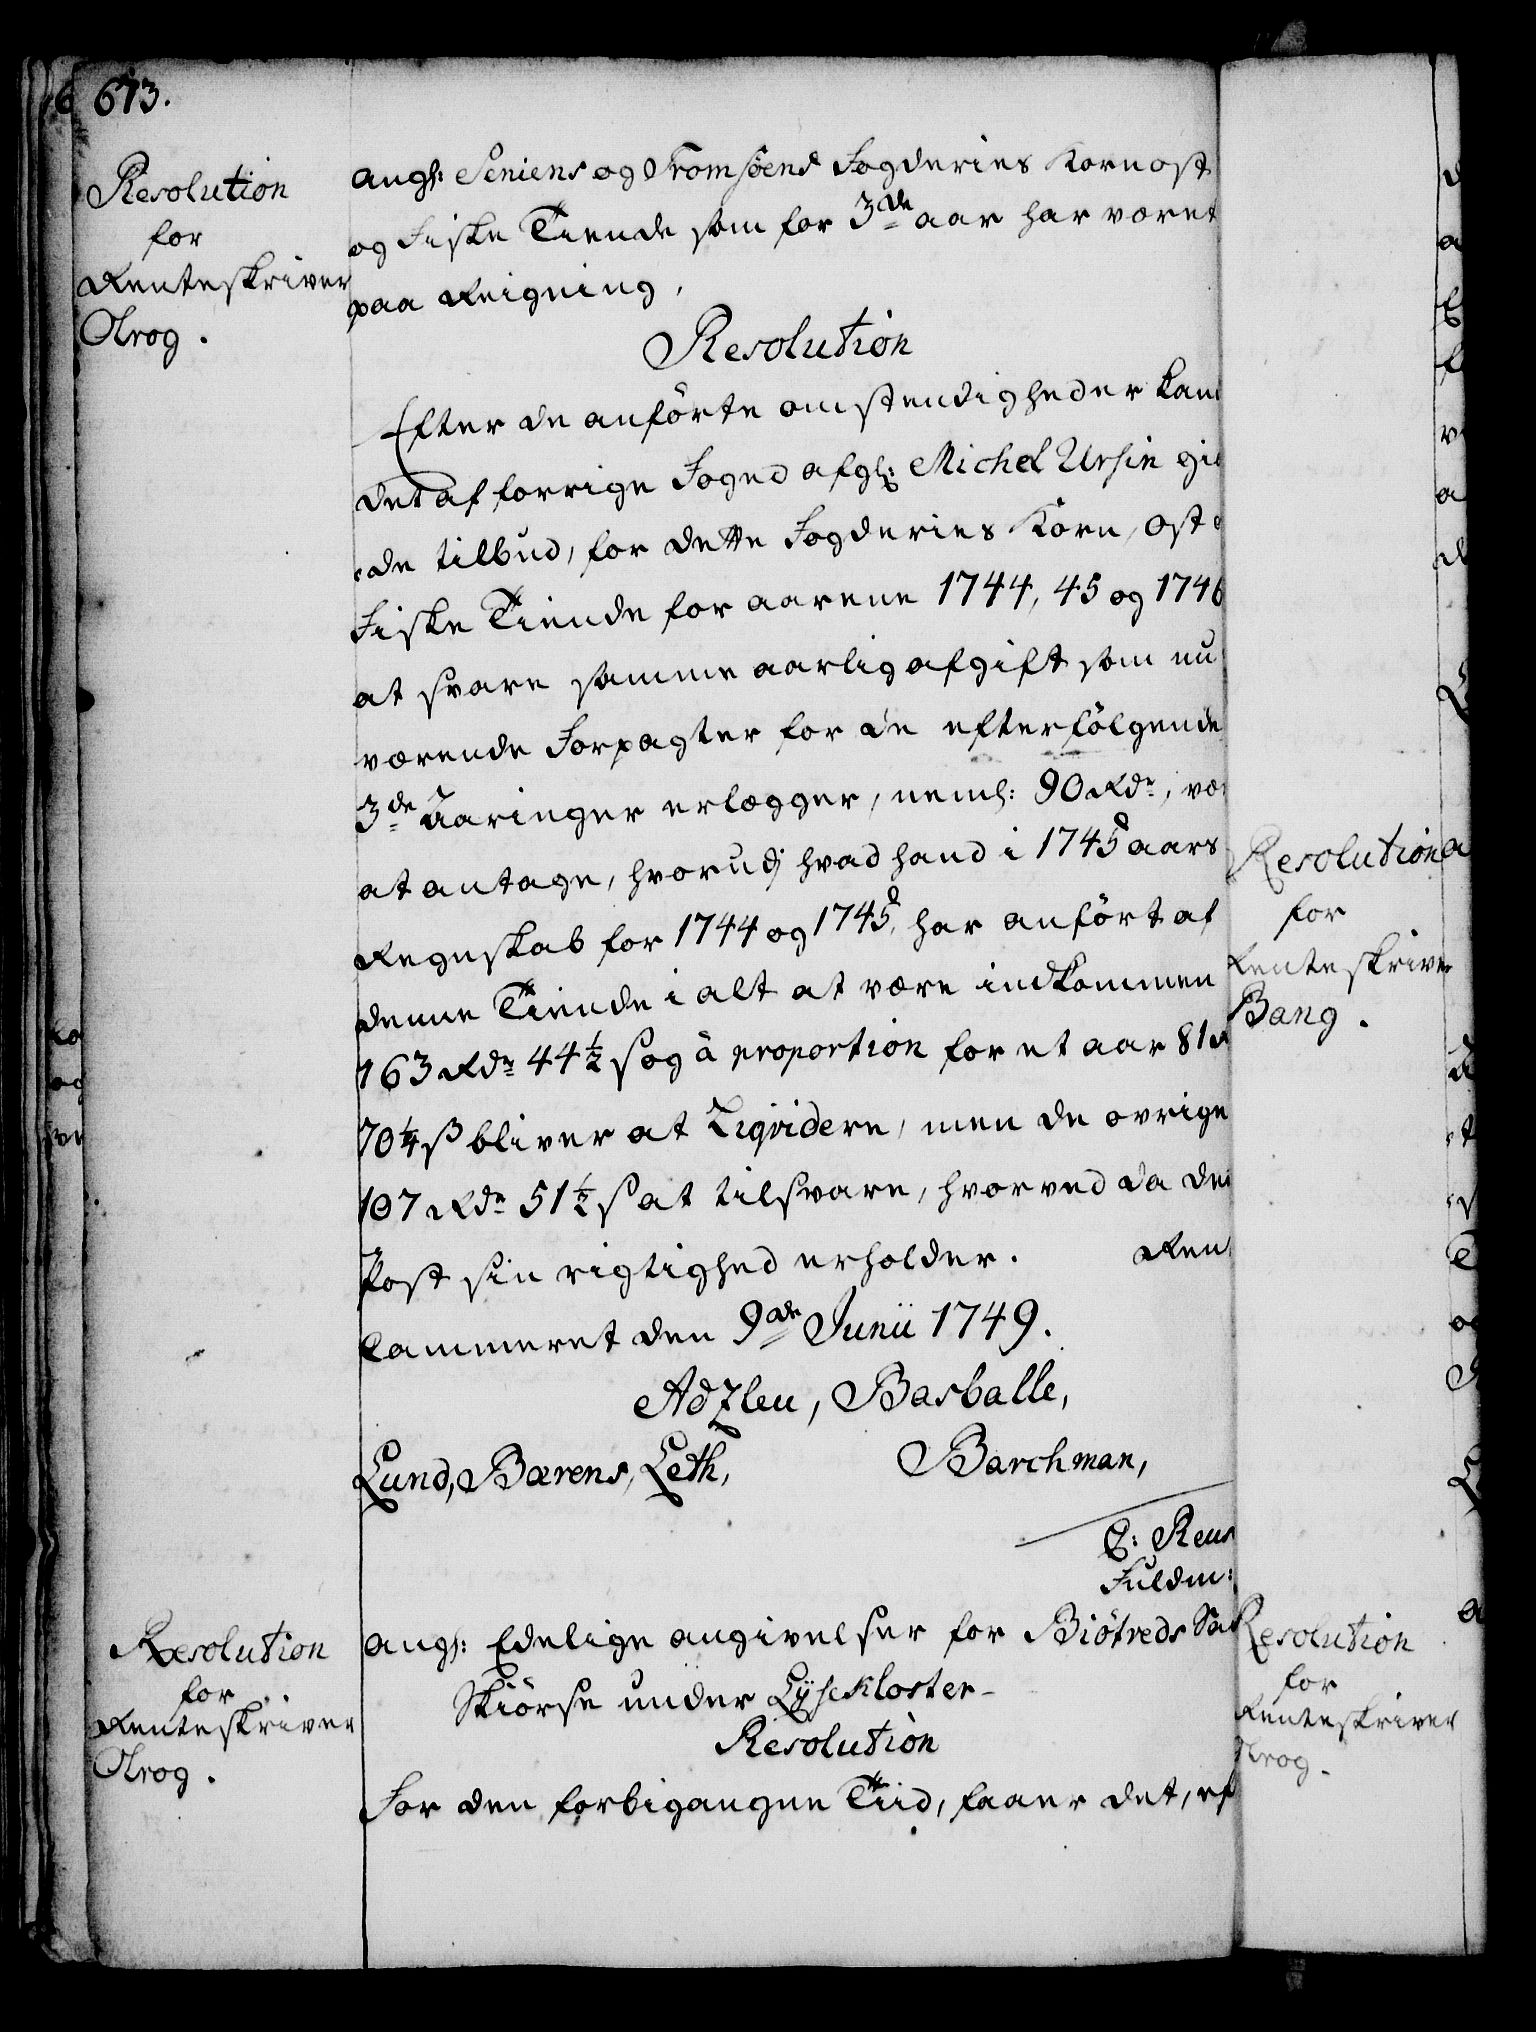 673.
Resolution
for
Renteskriver
Krog.
angl: Seniens og Tromsöens Fogderies Korn ost
og Fiske Tiende som for 3de aar har været
paa Reigning,
Resolution
Efter de anförte omstendigheder kand
det af forrige Foged afgl: Michel Ursin gi
de tilbud, for dette Fogderies Korn, Ost
Fiske Tiende for aarene 1744, 45 og 1746
at svare samme aarlig afgift som nu
værende Forpagter for de efterfölgende
3de Aaringer erlægger, neml: 90 Rdr, væ
at antage, hvorudj hvad hand i 1745 aars
Regnskab for 1744 og 1745, har anfört af
denne Tiende i alt at være indkommen
163 Rdr 44 1/2 s og â proportion for et aar 81 R
70 1/4 ß bliver at Liqvidere, men de övrige
107 Rdr 51 1/2 s at tilsvare, hvorved da den
Post sin rigtighed erholder. Ren
Cammeret den 9de Junii 1749.
Adzleu, Basballe,
Lund, Bærens, Leth, Barchman,
C: Reus
Fuldm:
Resolution
for
Renteskriver
Krog.
angl: Edelige angivelser for Biötveds Sa
Skiörse under Lyse Kloster-
Resolution
For den forbigangne Tiid, faaer det, ef
Resolution
for
Renteskriver
Bang.
Resolution
for
Renteskriver
Krog.